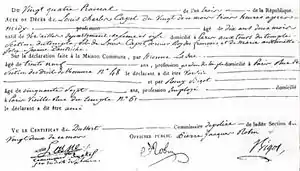 Du vingt quatre Prairial de l'an trois de la République.
Acte de Décès de Louis Charles Capet du vingt de ce mois trois heures après
midy âgé de dix ans deux mois
natif de Versailles département de Seine et oise domicilié à Paris aux tours du Temple
Section du temple fils de Louis Capet dernier Roy des français et de Marie antoinette
Sur la déclaration faite à la Maison Commune, par Etienne Lasne
âgé de trente neuf ans, profession
Section des droits de l'homme N° 48
le déclarant a dit être voisin
et par Remy Bigot
âgé de cinquante sept ans, profession Employé domicilié
à Paris Vieille rue du temple N° 61
le déclarant a dit être ami
Vu le Certificat de Dusser Commissaire de police de ladite Section du
vingt deux de ce mois Officier Public Pierre Jacques Robin
Lasne Robin Bigot